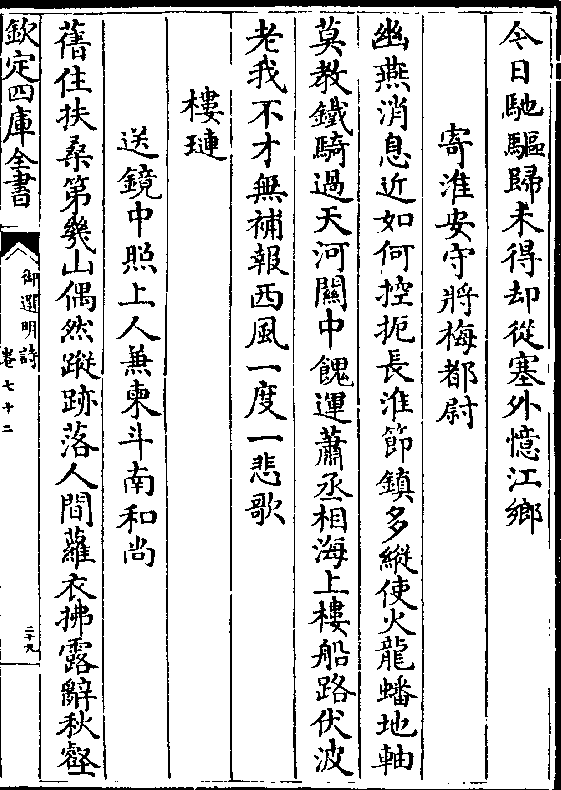 今日馳驅歸未得却從塞外憶江鄉
寄淮安守將梅都尉
幽燕消息近如何控扼長淮節鎮多縱使火龍蟠地軸
莫教鐵騎過天河關中餽運蕭丞相海上樓船路伏波
老我不才無補報西風一度一悲歌
樓璉
送鏡中照上人兼柬斗南和尚
舊住扶桑第幾山偶然蹤跡落人間蘿衣拂露辭秋壑
欽定四庫全書
御選明詩
卷七十二
二十九